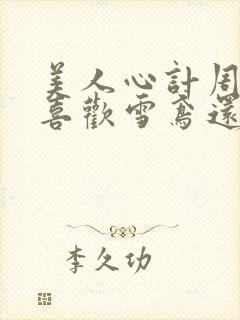 美人心計周
喜歡雪鳶還
李久功